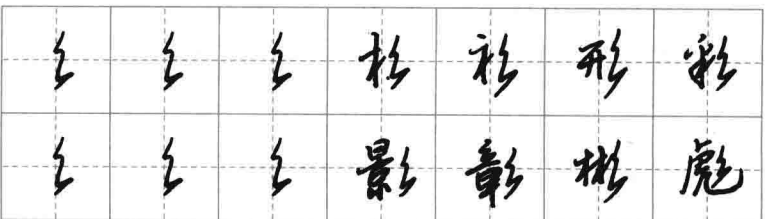 彡 彡 彡 杉 衫 形 彩
彡 彡 彡 影 彰 彬 彪